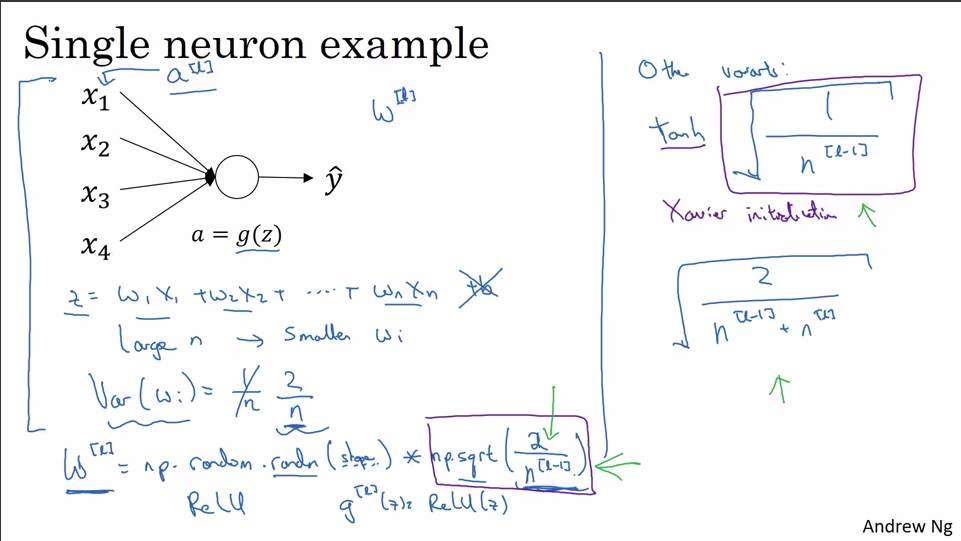 Single neuron example
x₁ a^[l]
x₂
x₃
x₄
w^[l]
ŷ
a = g(z)
z = w₁x₁ + w₂x₂ + ····· + wₙxₙ +b
Large n → Smaller wᵢ
Var(wᵢ) = 1/n 2/n
W^[l] = np.random.randn(shape) * np.sqrt(2/n^[l-1])
ReLU g^[l](z) = ReLU(z)
Other variants:
tanh √(1/n^[l-1])
Xavier initialization ↑
√(2/(n^[l-1] + n^[l]))
↑
Andrew Ng